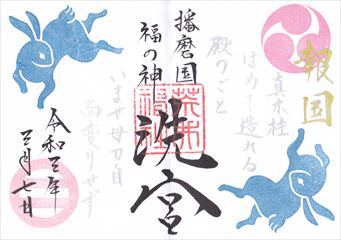 報国
真木柱
ほめて造れる
殿のごと
いませ母刀自
面変りせず
播磨国
福の神
洗宮
令和三年
三月七日